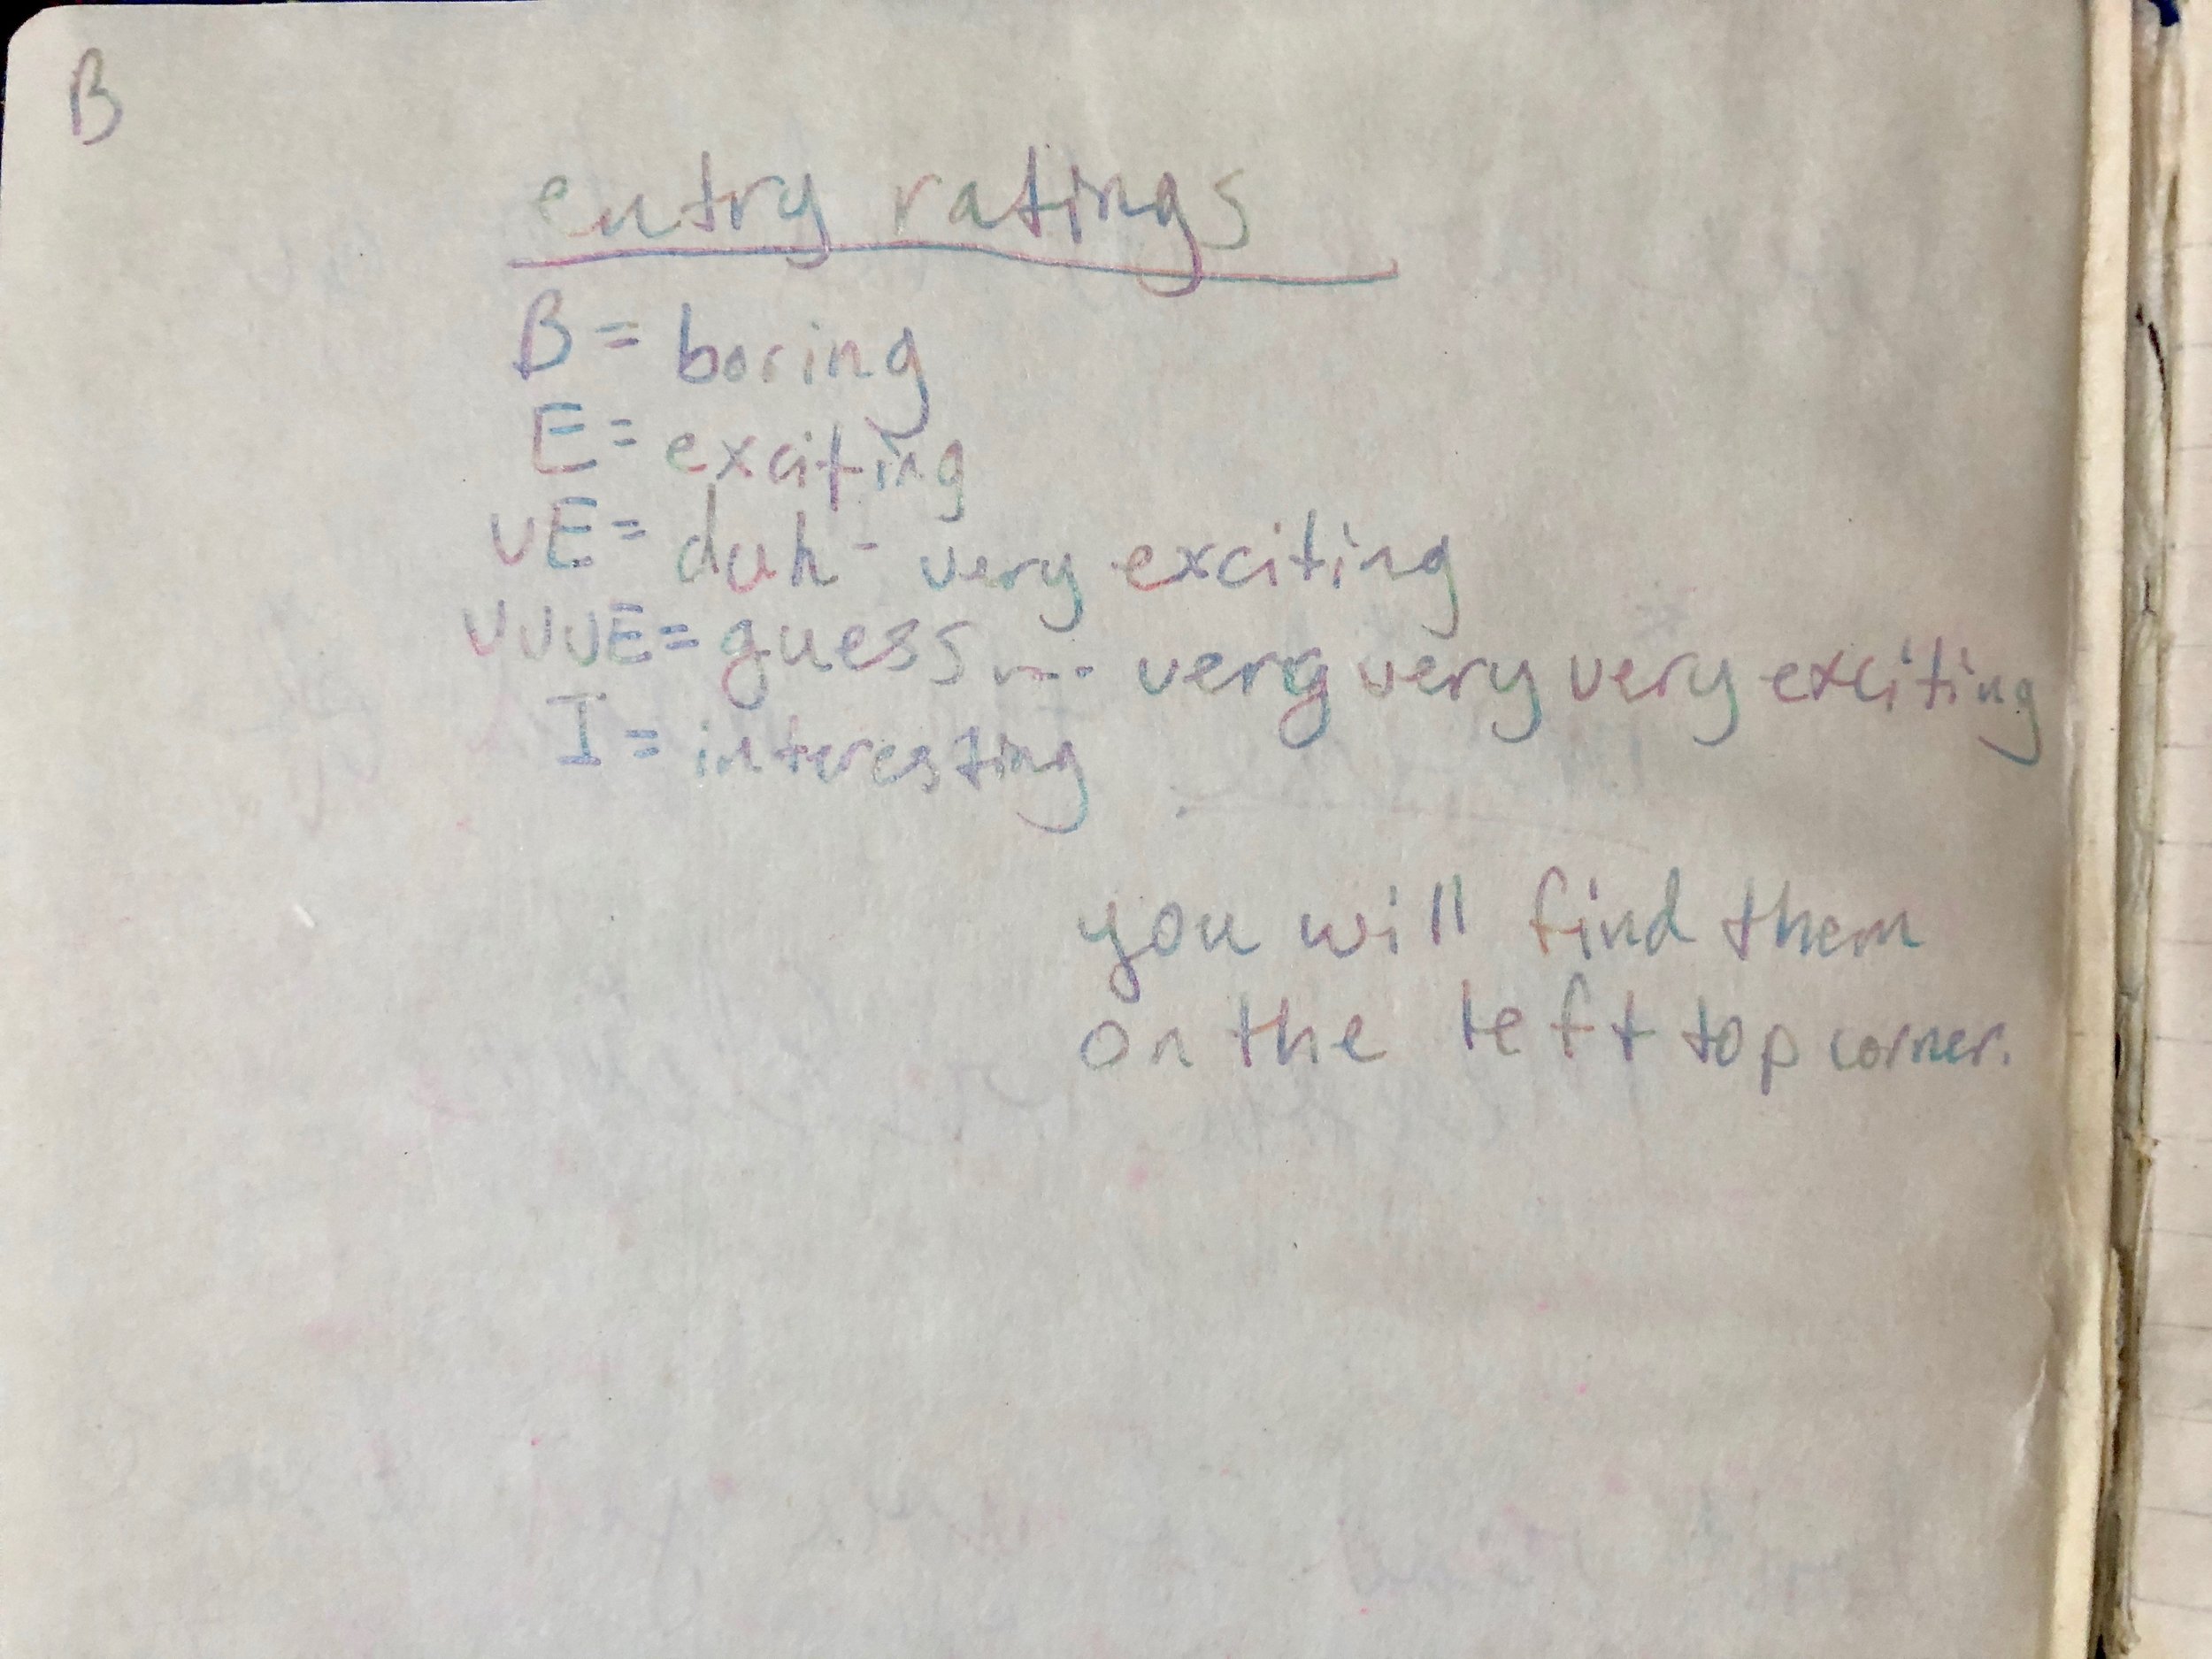 B
entry ratings
B = boring
E = exciting
vE = duh - very exciting
vvvE = guess .... very very very exciting
I = interesting
you will find them
on the left top corner.